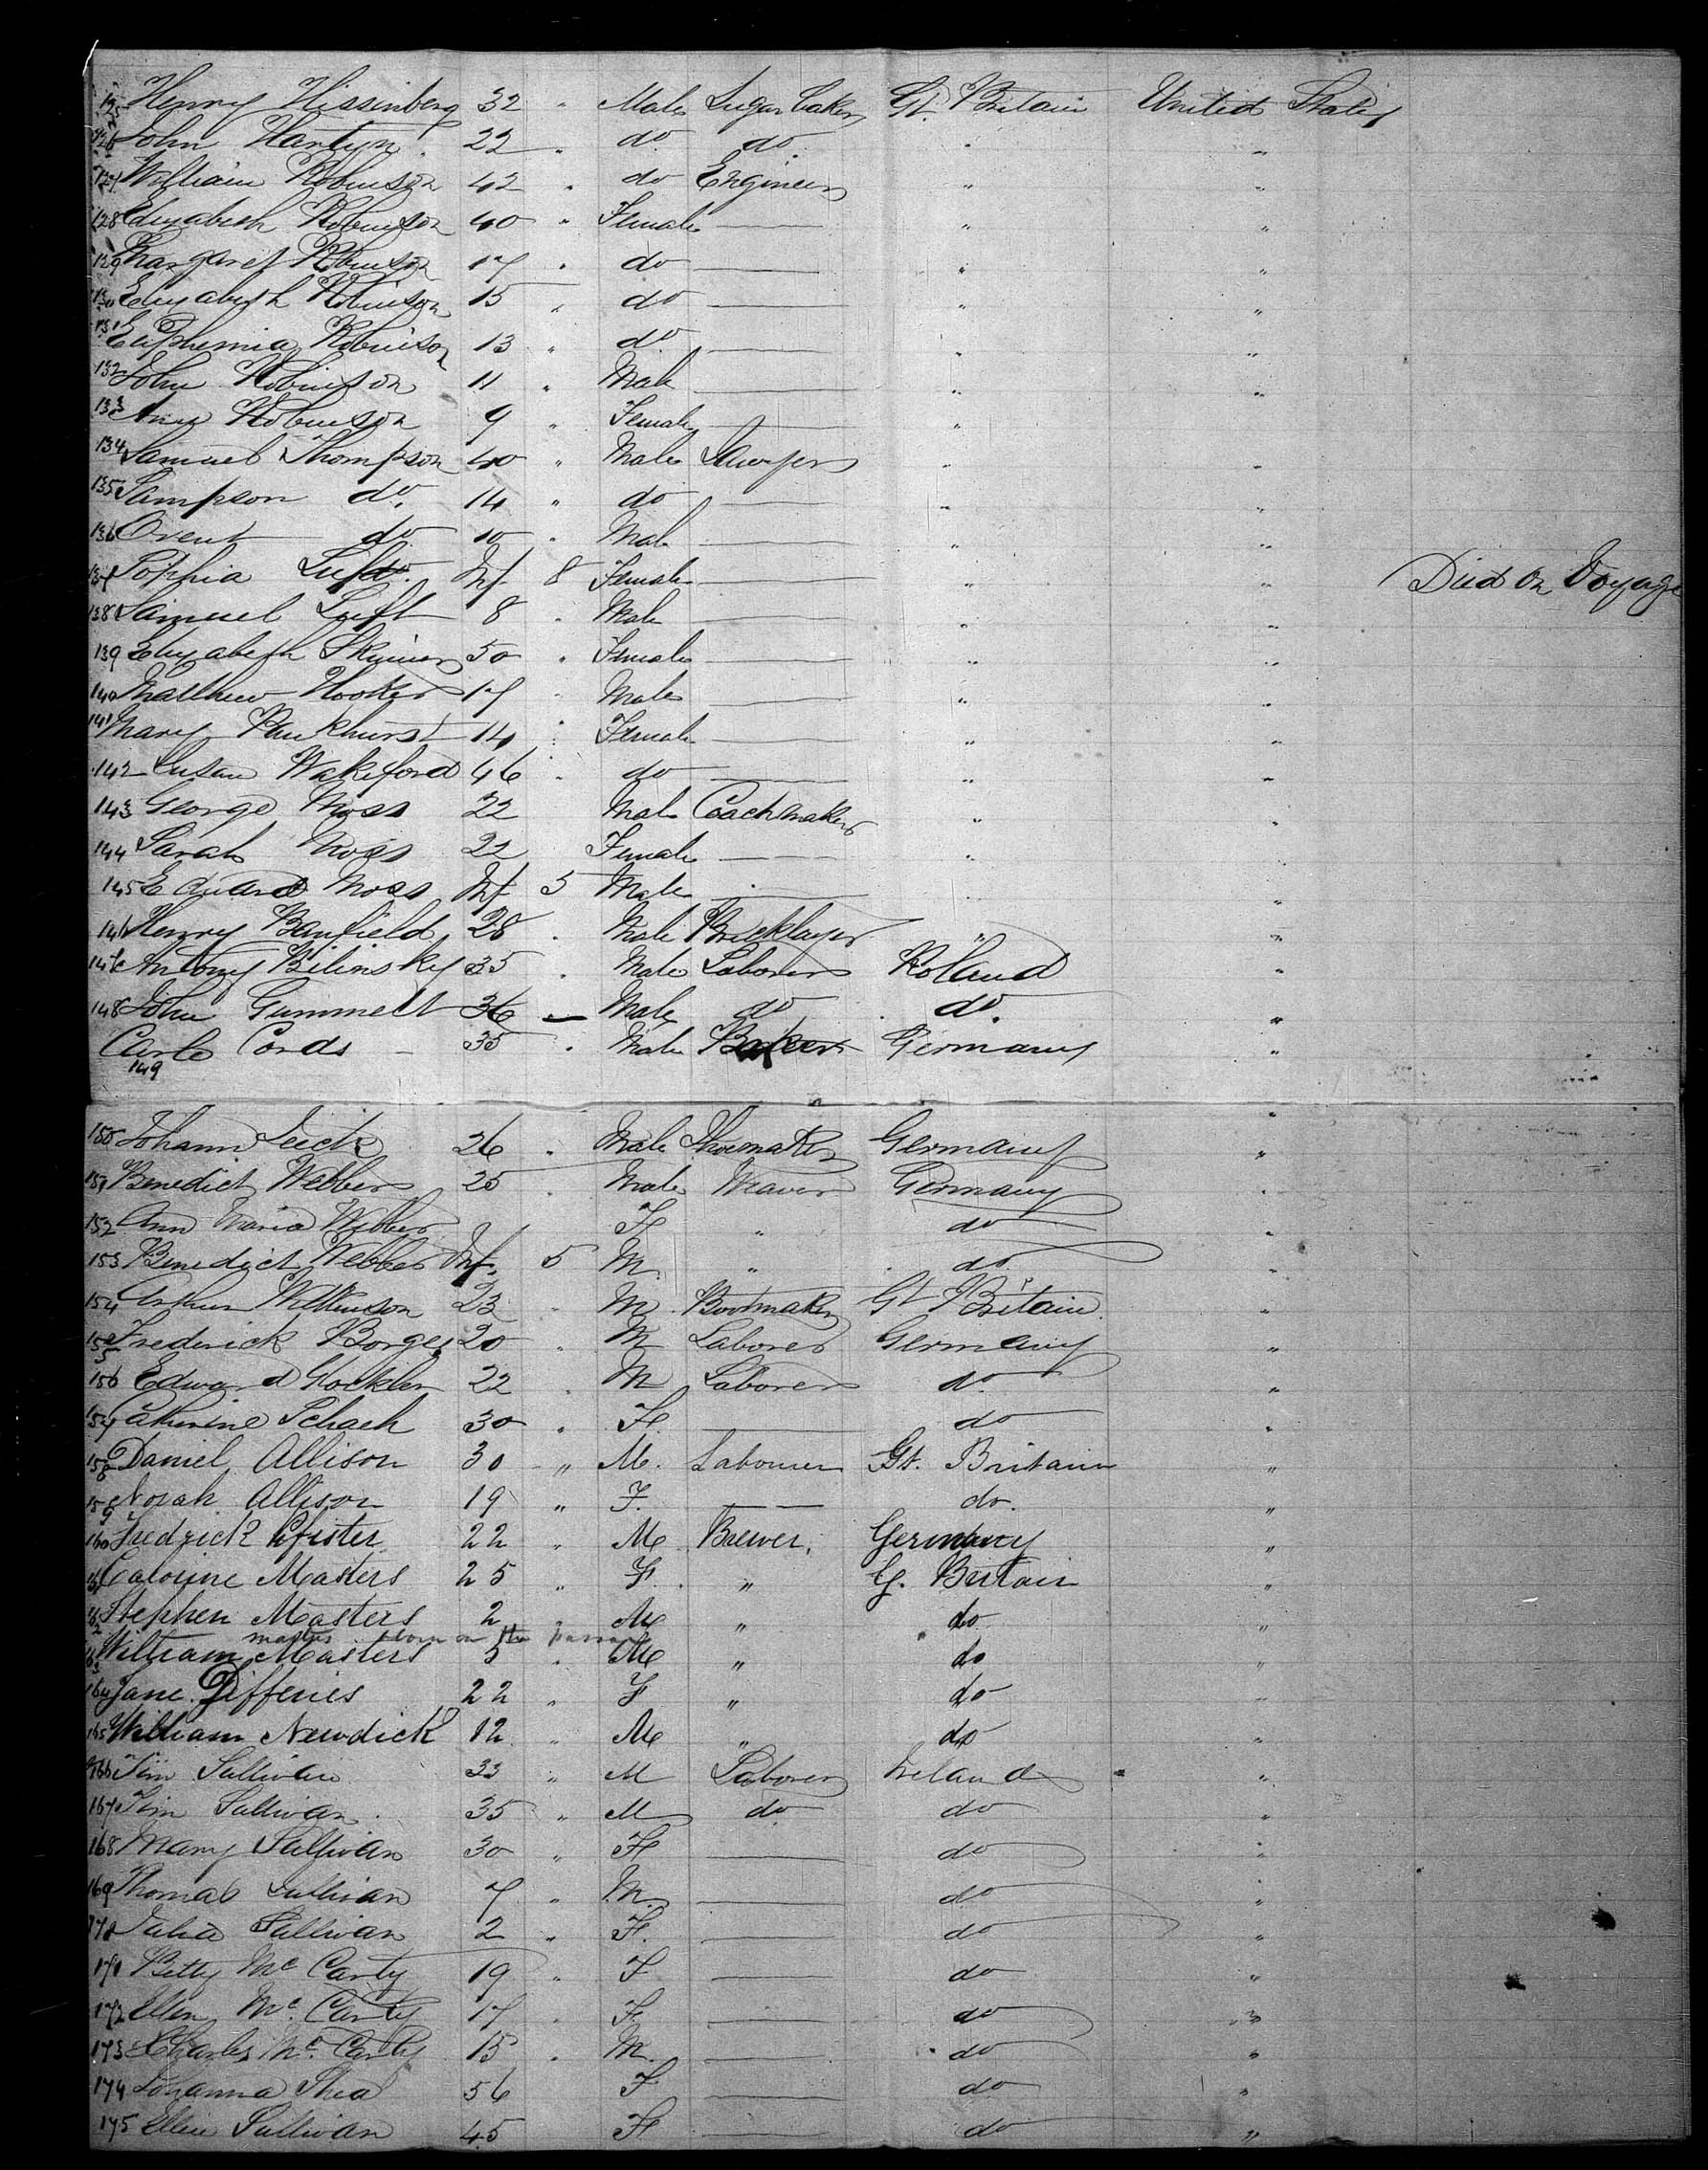 125 Henry Hissinberg 32 " Male Sugar Baker Gt. Britain United States
126 John Hartyn 22 " do do " "
127 William Robinson 42 " do Engineer " "
128 Elizabeth Robinson 40 " Female — " "
129 Margaret Robinson 17 " do — " "
130 Elizabeth Robinson 15 " do — " "
131 Euphemia Robinson 13 " do — " "
132 John Robinson 11 " Male — " "
133 Ann Robinson 9 " Female — "
134 Samuel Thompson 40 " Male Sawyer " "
135 Sampson do. 14 " do — " "
136 do 10 " Male — " "
137 Sophia Inf 8 Female — " " Died on Voyage
138 Samuel Luft 8 " Male — " "
139 Elizabeth Skinner 50 " Female — " "
140 Matthew Hooker 17 " Male — " "
141 Mary Pankhurst 14 " Female — " "
142 Susan Wakeford 46 " do — " "
143 George Moss 22 Male Coachmaker " "
144 Sarah Moss 22 Female — "
145 Edward Moss Inf 5 Male — " "
146 Henry Banfield 28 " Male Bricklayer " "
147 Antony Bilinsky 35 " Male Laborer Poland "
148 John Gummelt 36 " Male do do. "
Carlo Cords — 35 " Male Baker Germany "
149
150 Johann Leick 26 " Male Shoemaker Germany "
151 Benedict Webber 25 " Male Weaver Germany "
152 Ann Maria Webber F " do "
153 Benedict Webber Inf. 5 M " do "
154 Arthur Wilkinson 23 " M Bootmaker Gt Britain "
155 Frederick Borges 20 " M Laborer Germany "
156 Edward 22 " M Laborer do "
157 Catherine Schach 30 " F — do "
158 Daniel Allison 30 " M. Labourer Gt. Britain "
159 Norah Allison 19 " F. — do. "
160 Fredrick Pfister 22 " M Brewer. Germany "
161 Caroline Masters 25 " F. " G. Britain "
162 Stephen Masters 2 " M " do "
masters born on the passage
163 William Masters 5 " M " do "
164 Jane Jefferies 22 " F " do "
165 William Newdick 12 " M " do "
166 Tim Sullivan 33 " M Laborer Ireland "
167 Tim Sullivan 35 " M do do "
168 Mary Sullivan 30 " F — do "
169 Thomas Sullivan 7 " M. — do "
170 Julia Sullivan 2 " F. — do "
171 Betty McCarty 19 " F — do "
172 Ellen McCarty 17 " F. — do "
173 Charles McCarty 15 " M. — do "
174 Johanna Shea 56 F — do "
175 Ellen Sullivan 45 F — do "